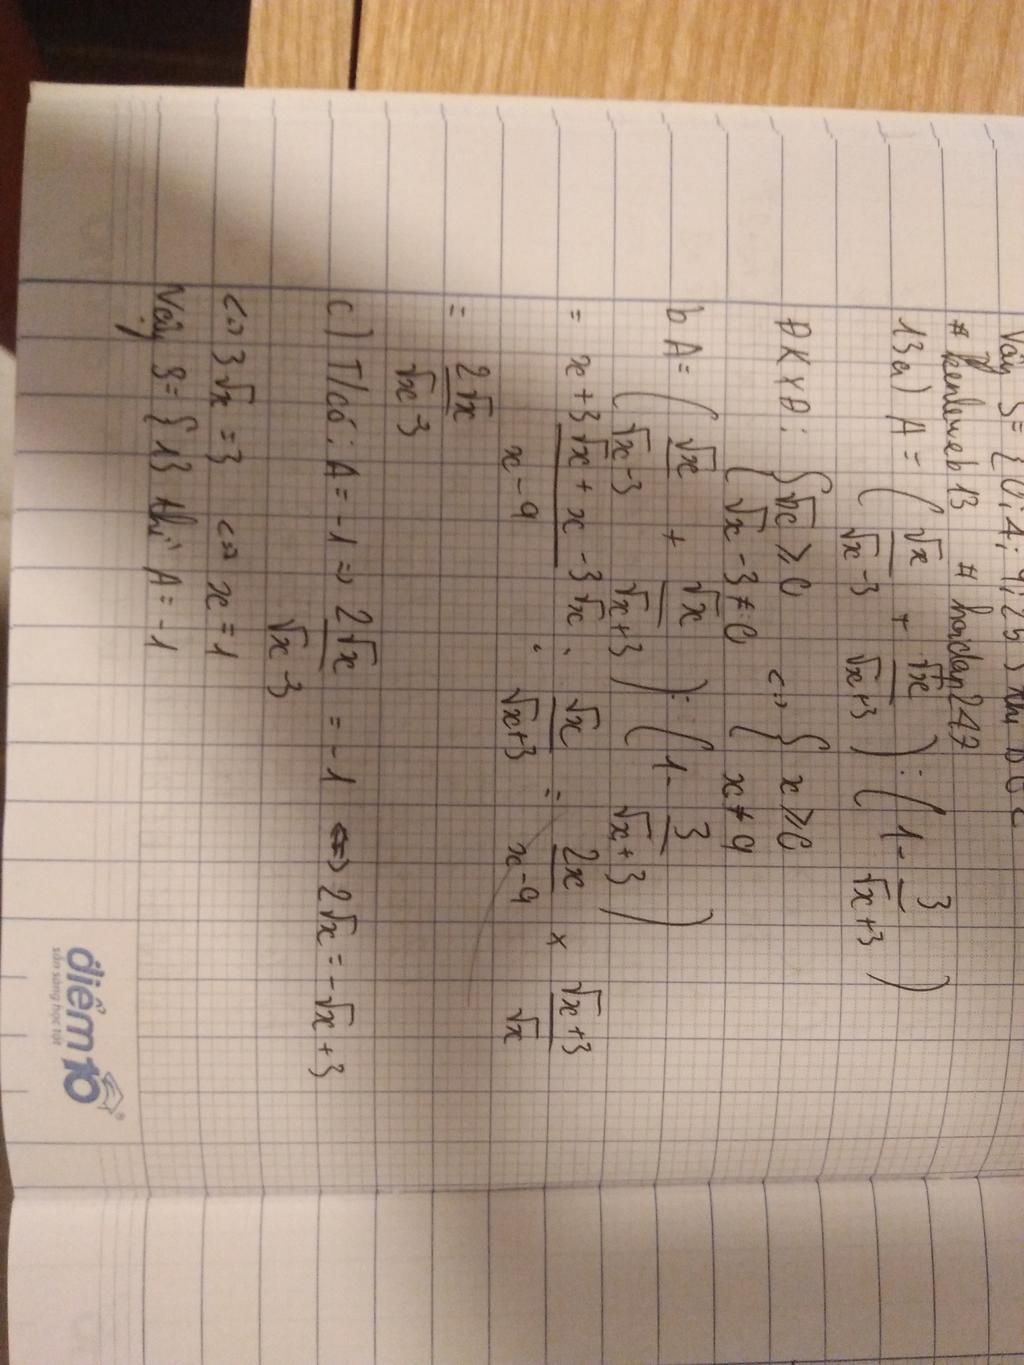 Vậy S = {0; 4; 9; 25} thì
# kenluweb13 # hoidap247
13a) A = ( √x / √x-3 + √x / √x+3 ) : ( 1 - 3 / √x+3 )
ĐKXĐ: { √x ≥ 0 <=> { x ≥ 0
{ √x - 3 ≠ 0 { x ≠ 9
b A = ( √x / √x-3 + √x / √x+3 ) : ( 1 - 3 / √x+3 )
= x + 3√x + x - 3√x / x - 9 : √x / √x+3 = 2x / x-9 × √x+3 / √x
= 2√x / √x-3
c) T/có: A = -1 => 2√x / √x-3 = -1 <=> 2√x = -√x + 3
<=> 3√x = 3 <=> x = 1
Vậy S = {1} thì A = -1
điểm 10
sẵn sàng học tốt